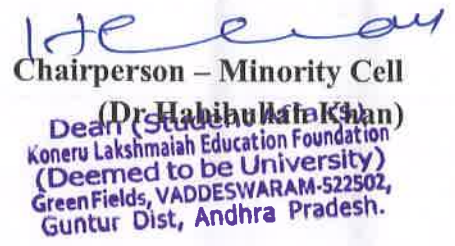 Chairperson – Minority Cell
(Dr Habibullah Khan)
Dean (Student Affairs)
Koneru Lakshmaiah Education Foundation
(Deemed to be University)
Green Fields, VADDESWARAM-522502,
Guntur Dist, Andhra Pradesh.